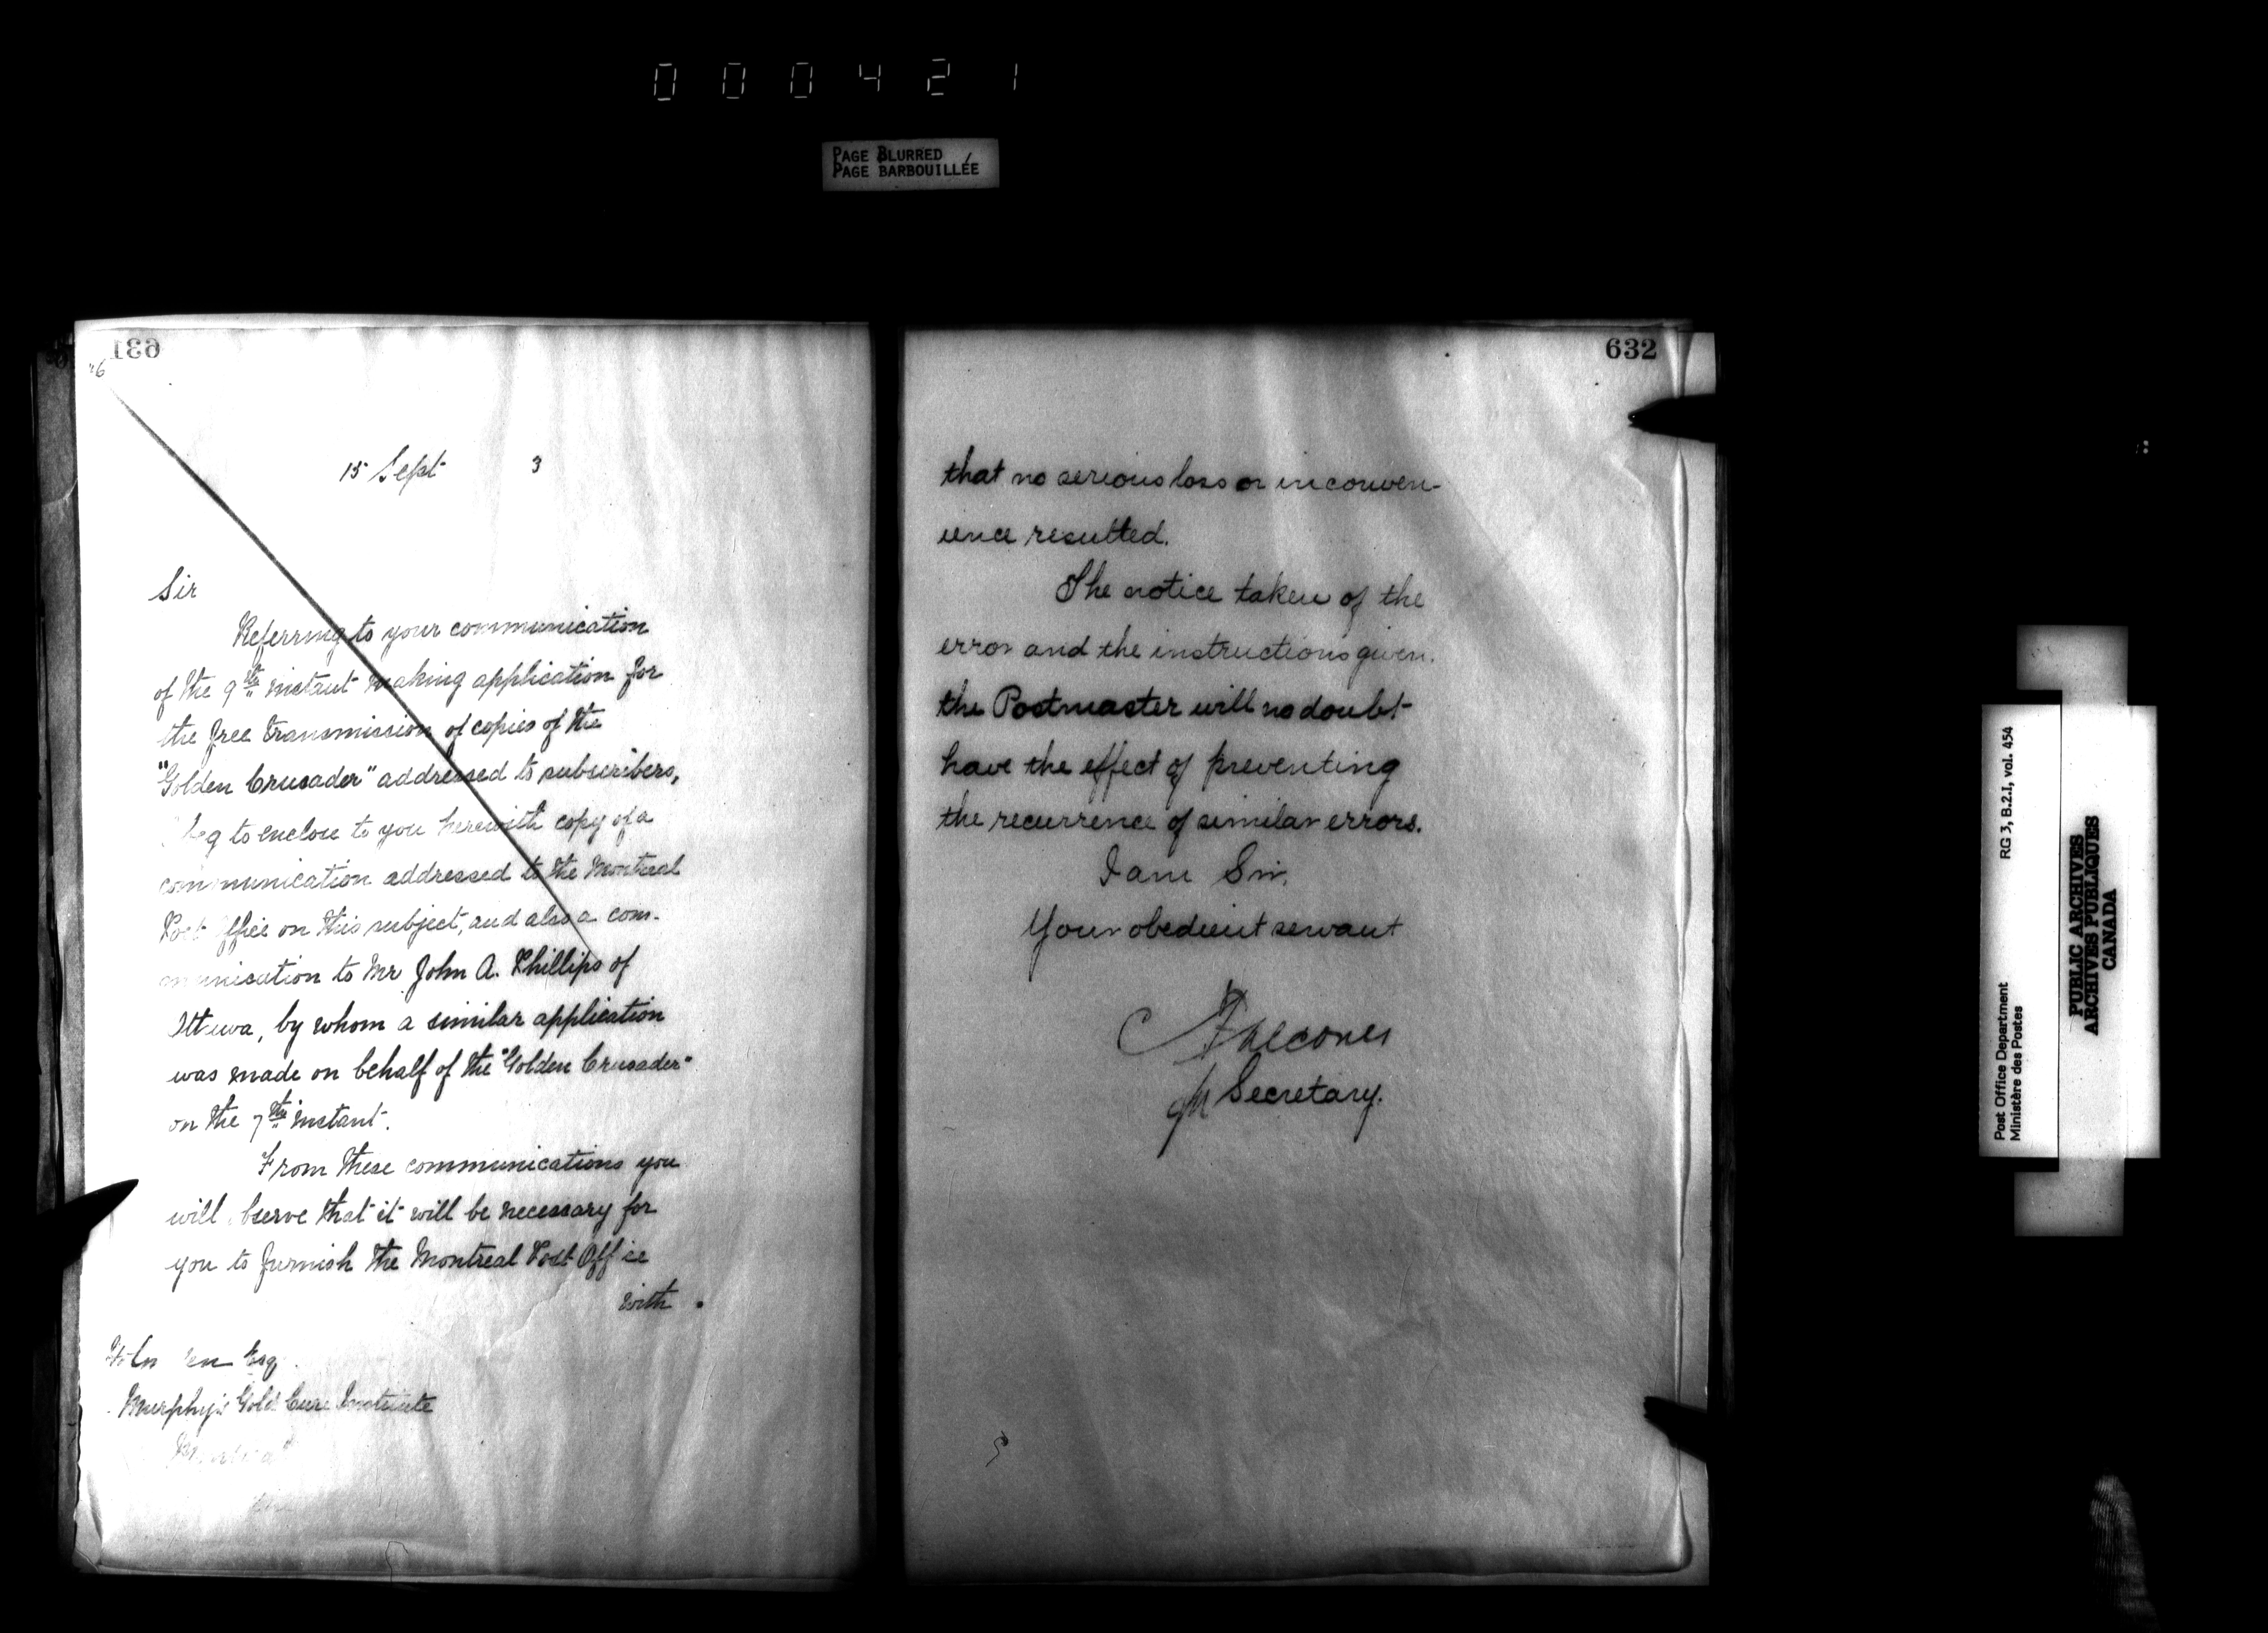 000421
PAGE BLURRED
PAGE BARBOUILLÉE
631
15 Sept 3
Sir
Referring to your communication
of the 9th instant making application for
the free transmission of copies of the
"Golden Crusader" addressed to subscribers,
beg to enclose to you herewith copy of a
communication addressed to the Montreal
Post Office on this subject, and also a com-
munication to Mr John A. Phillips of
Ottawa, by whom a similar application
was made on behalf of the "Golden Crusader"
on the 7th instant.
From these communications you
will observe that it will be necessary for
you to furnish the Montreal Post Office
with
Esq
Murphy's Gold Cure Institute
Montreal
632
that no serious loss or inconven-
ience resulted.
The notice taken of the
error and the instructions given
the Postmaster will no doubt
have the effect of preventing
the recurrence of similar errors.
I am Sir,
Your obedient servant
Secretary.
Post Office Department
Ministère des Postes
RG 3, B.2.I, vol. 454
PUBLIC ARCHIVES
ARCHIVES PUBLIQUES
CANADA